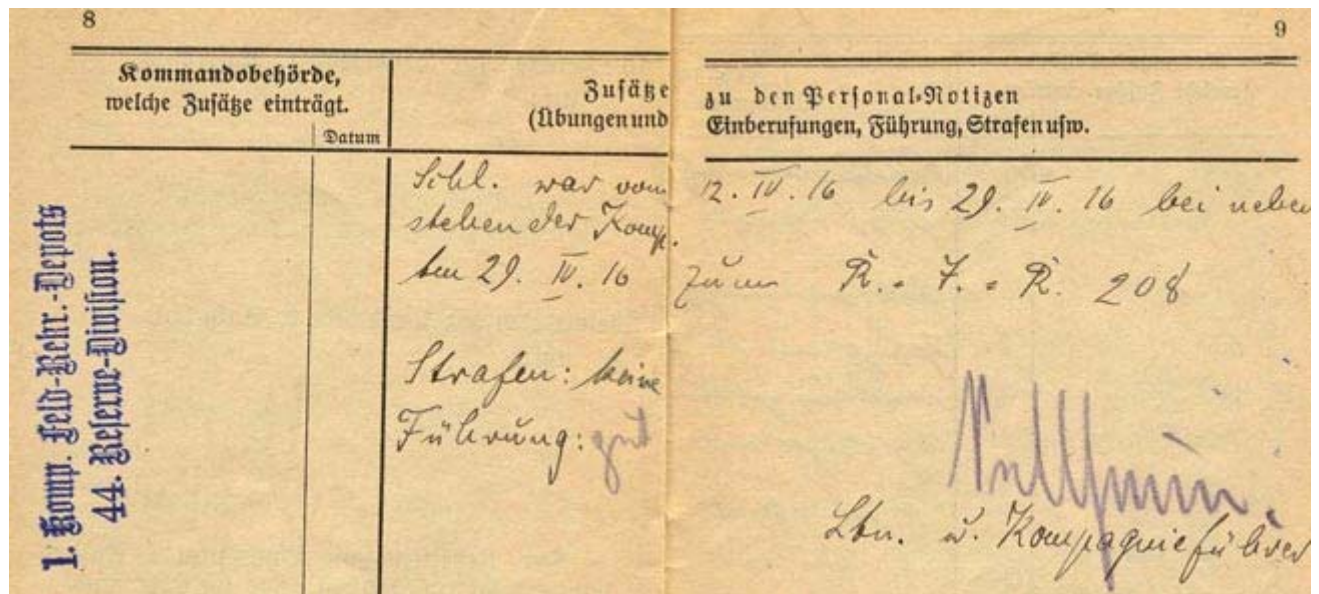 8
9
Kommandobehörde,
welche Zusätze einträgt.
Datum
Zusätze zu den Personal-Notizen
(Übungen und Einberufungen, Führung, Strafen usw.
1. Komp. Feld-Rekr.-Depots
44. Reserve-Division.
Schl. war vom 12. IV. 16 bis 29. IV. 16 bei neben
stehender Komp.
den 29. IV. 16 zum R.-I.-R. 208
Strafen: keine
Führung: gut
Ltn. u. Kompagnieführer